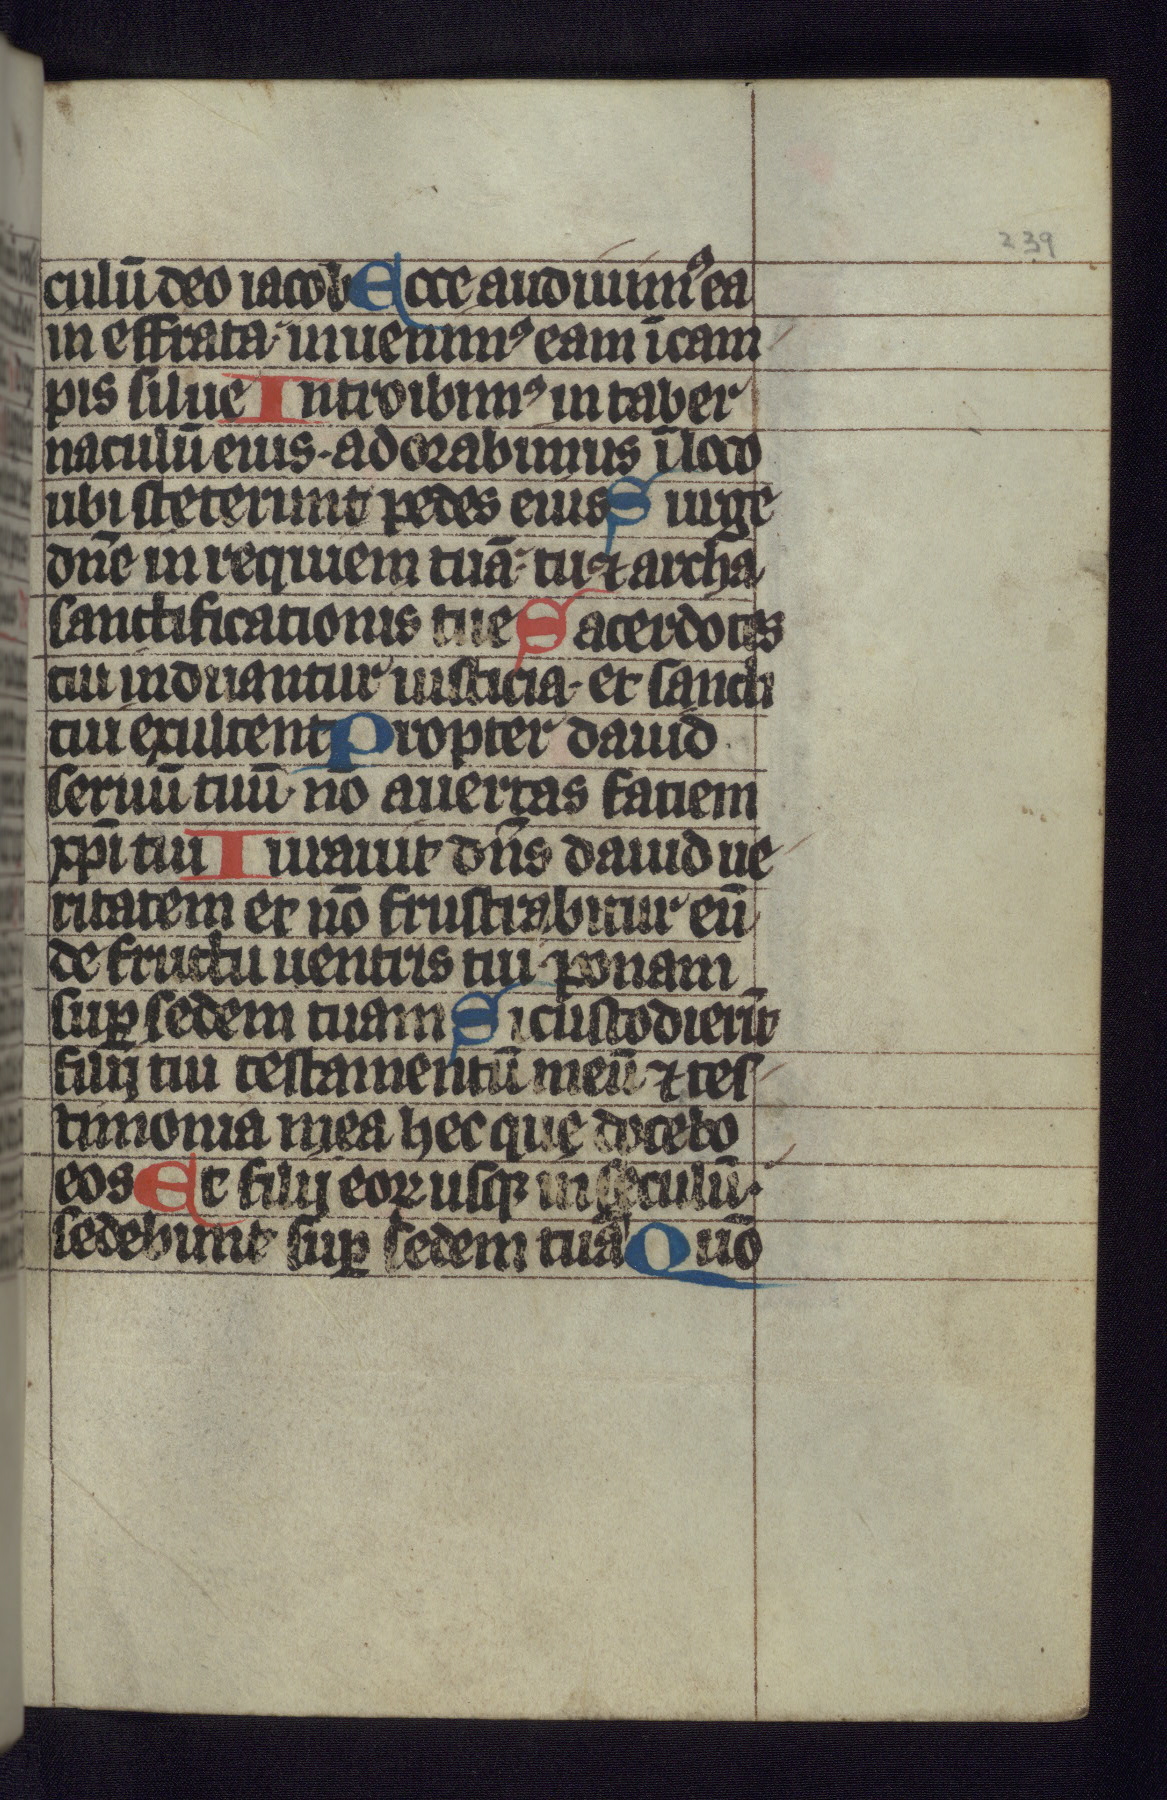 239
culū deo iacob Ecce audiuimꝰ ea
in effrata· inuenimꝰ eam ī cam
pis silue Introibimꝰ in taber
naculū eius· adorabimus ī loco
ubi steterunt pedes eius Surge
dn̄e in requiem tuā· tu ⁊ archa
sanctificationis tue Sacerdotes
tui induantur iusticia· et sancti
tui exultent Propter dauid
seruū tuū· nō auertas faciem
xp̄i tui Iurauit dn̄s dauid ue
ritatem et nō frustrabitur eū
de fructu uentris tui· ponam
suꝑ sedem tuam Si custodierīt
filij tui testamentū meū ⁊ tes
timonia mea hec que docebo
eos Et filij eoꝝ usqꝫ in seculū·
sedebunt suꝑ sedem tuā Quō